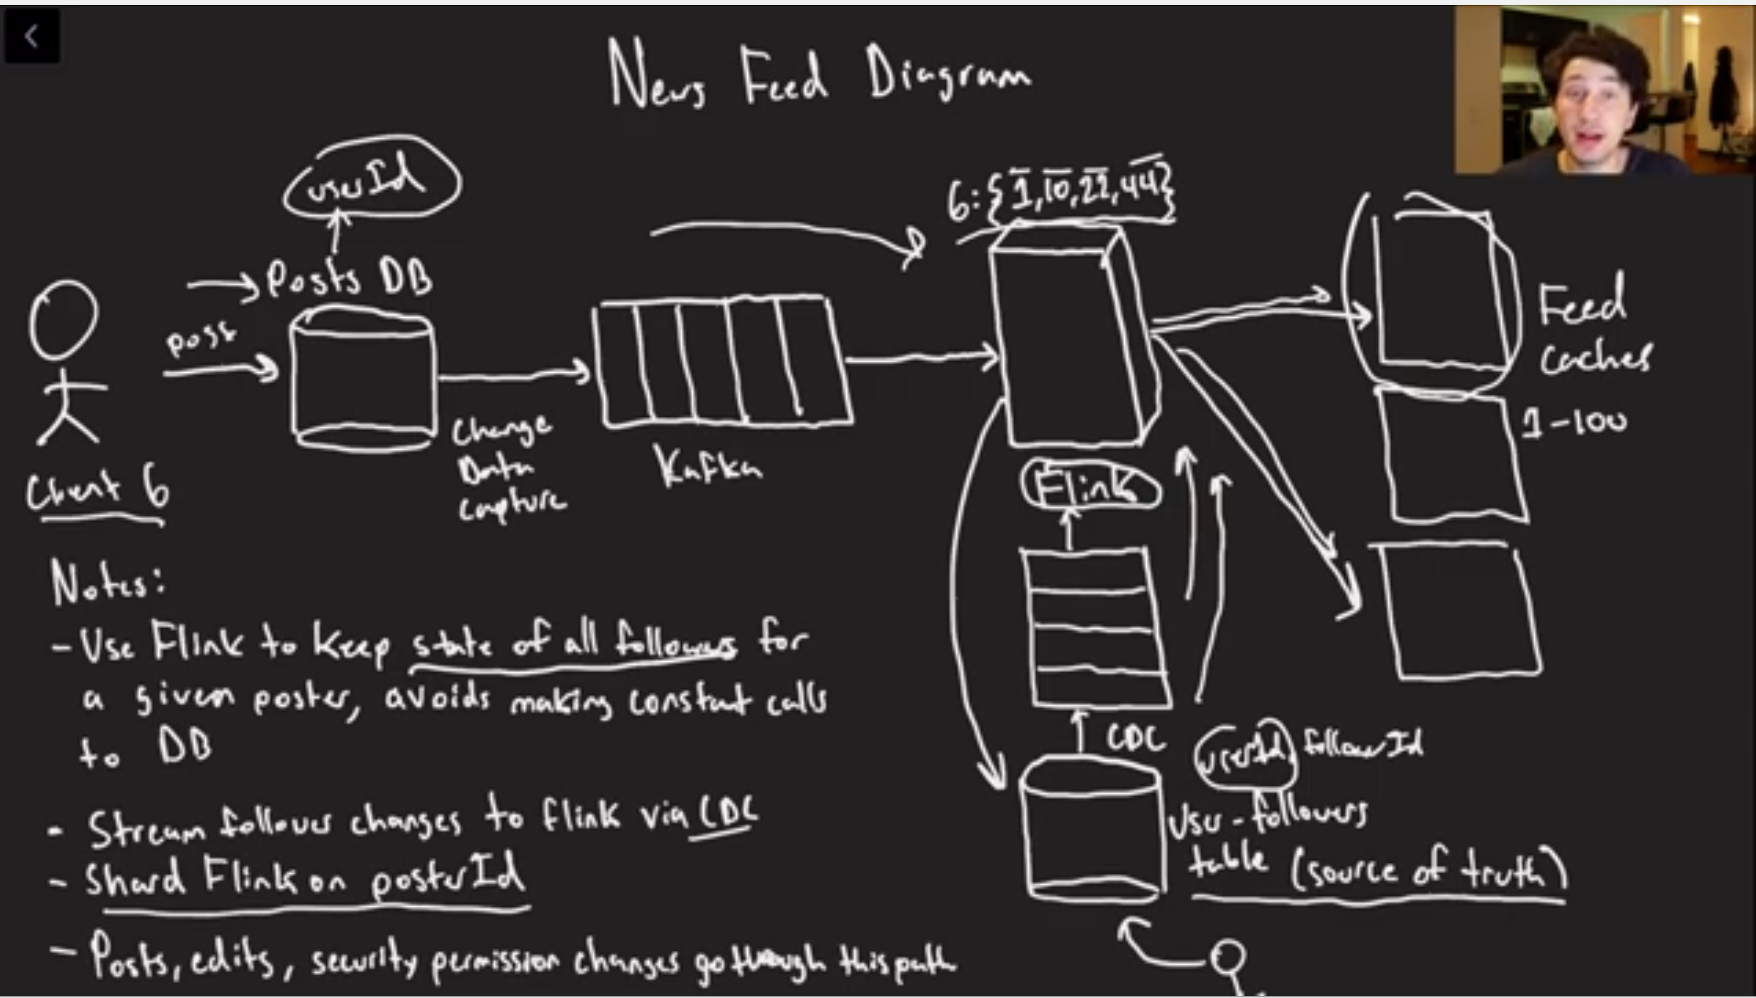 News Feed Diagram
userId
Posts DB
post
Client 6
Change
Data
Capture
Kafka
6:{1,10,22,44}
Flink
CDC
userId, followerId
User-followers
table (source of truth)
Feed
Caches
1-100
Notes:
- Use Flink to keep state of all followers for
a given poster, avoids making constant calls
to DB
- Stream follower changes to flink via CDC
- Shard Flink on posterId
- Posts, edits, security permission changes go through this path